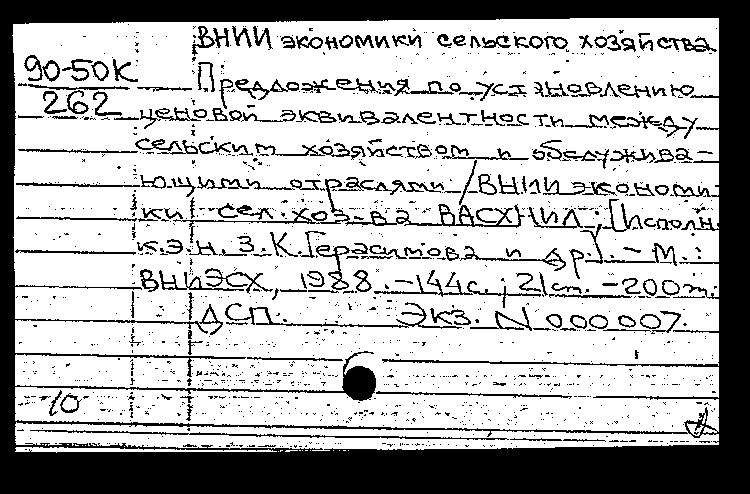 ВНИИ экономики сельского хозяйства
90-50К
262
Предложения по установлению
ценовой эквивалентности между
сельским хозяйством и обслужива-
ющими отраслями / ВНИИ экономи-
ки сел. хоз-ва ВАСХНИЛ; [Исполн.
к.э.н. З.К. Герасимова и др.]. - М.:
ВНИЭСХ, 1988. - 144с.; 21см. - 200т.
ДСП. Экз. N 000007.
10